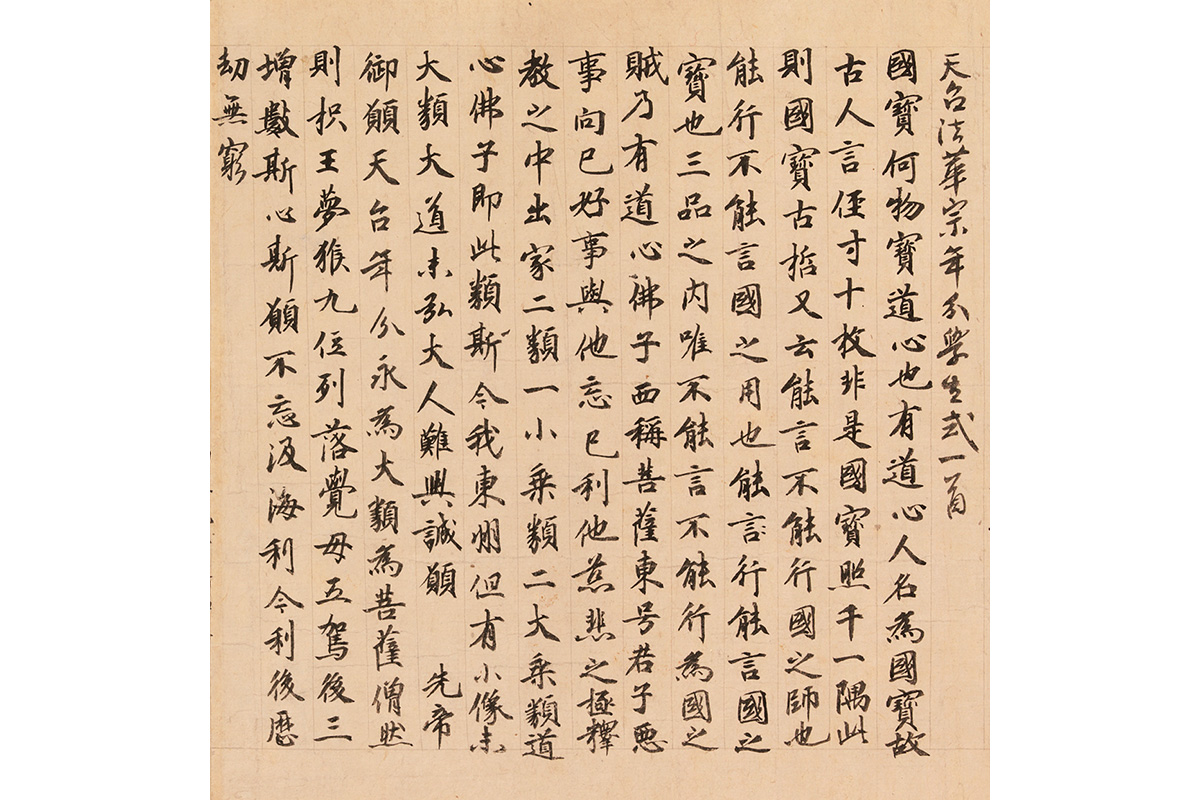 天台法華宗年分學生式一首
國寶何物寶道心也有道心人名為國寶故
古人言徑寸十枚非是國寶照千一隅此
則國寶古哲又云能言不能行國之師也
能行不能言國之用也能言行能言國之
寶也三品之内唯不能言不能行為國之
賊乃有道心佛子西稱菩薩東号君子悪
事向己好事與他忘己利他慈悲之極釋
教之中出家二類一小乗類二大乗類道
心佛子即此類斯今我東州但有小像未
大類大道未弘大人難興誠願　先帝
御願天台年分永為大類為菩薩僧然
則枳王夢猴九位列落覺母五駕後三
増數斯心斯願不忘汲海利今利後歴
劫無窮